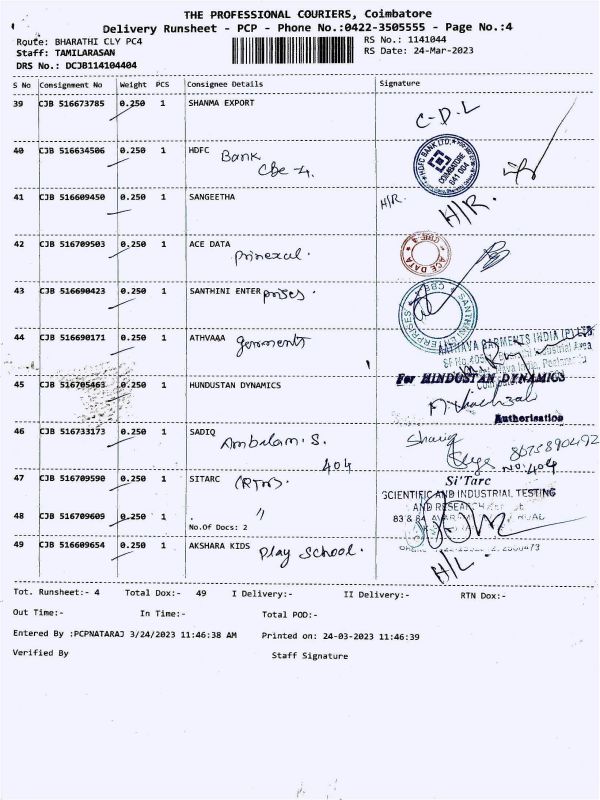 THE PROFESSIONAL COURIERS, Coimbatore
Delivery Runsheet - PCP - Phone No.:0422-3505555 - Page No.:4
Route: BHARATHI CLY PC4
Staff: TAMILARASAN
DRS No.: DCJB114104404
RS No.: 1141044
RS Date: 24-Mar-2023
S No Consignment No Weight PCS Consignee Details Signature
39 CJB 516673785 0.250 1 SHANMA EXPORT C-D.L
40 CJB 516634506 0.250 1 HDFC Bank
Cbe-4.
HDFC BANK LTD.
COIMBATORE
641 004
41 CJB 516609450 0.250 1 SANGEETHA H/R. H/R.
42 CJB 516709503 0.250 1 ACE DATA
ACE DATA
CBE-4
43 CJB 516690423 0.250 1 SANTHINI ENTER prises.
SANTHINI ENTERPRISES
CBE
44 CJB 516690171 0.250 1 ATHVAAA garments
GARMENTS INDIA (P) LTD
45 CJB 516705463 0.250 1 HUNDUSTAN DYNAMICS
For HINDUSTAN DYNAMICS
Authorisation
46 CJB 516733173 0.250 1 SADIQ
Ambalam. S.
404
8675890492
NO: 404
47 CJB 516709590 0.250 1 SITARC
Si'Tarc
SCIENTIFIC AND INDUSTRIAL TESTING
AND RESEARCH
48 CJB 516709609 0.250 1 "
No.Of Docs: 2
49 CJB 516609654 0.250 1 AKSHARA KIDS Play School.
H/L
Tot. Runsheet:- 4 Total Dox:- 49 I Delivery:- II Delivery:- RTN Dox:-
Out Time:- In Time:- Total POD:-
Entered By :PCPNATARAJ 3/24/2023 11:46:38 AM Printed on: 24-03-2023 11:46:39
Verified By Staff Signature